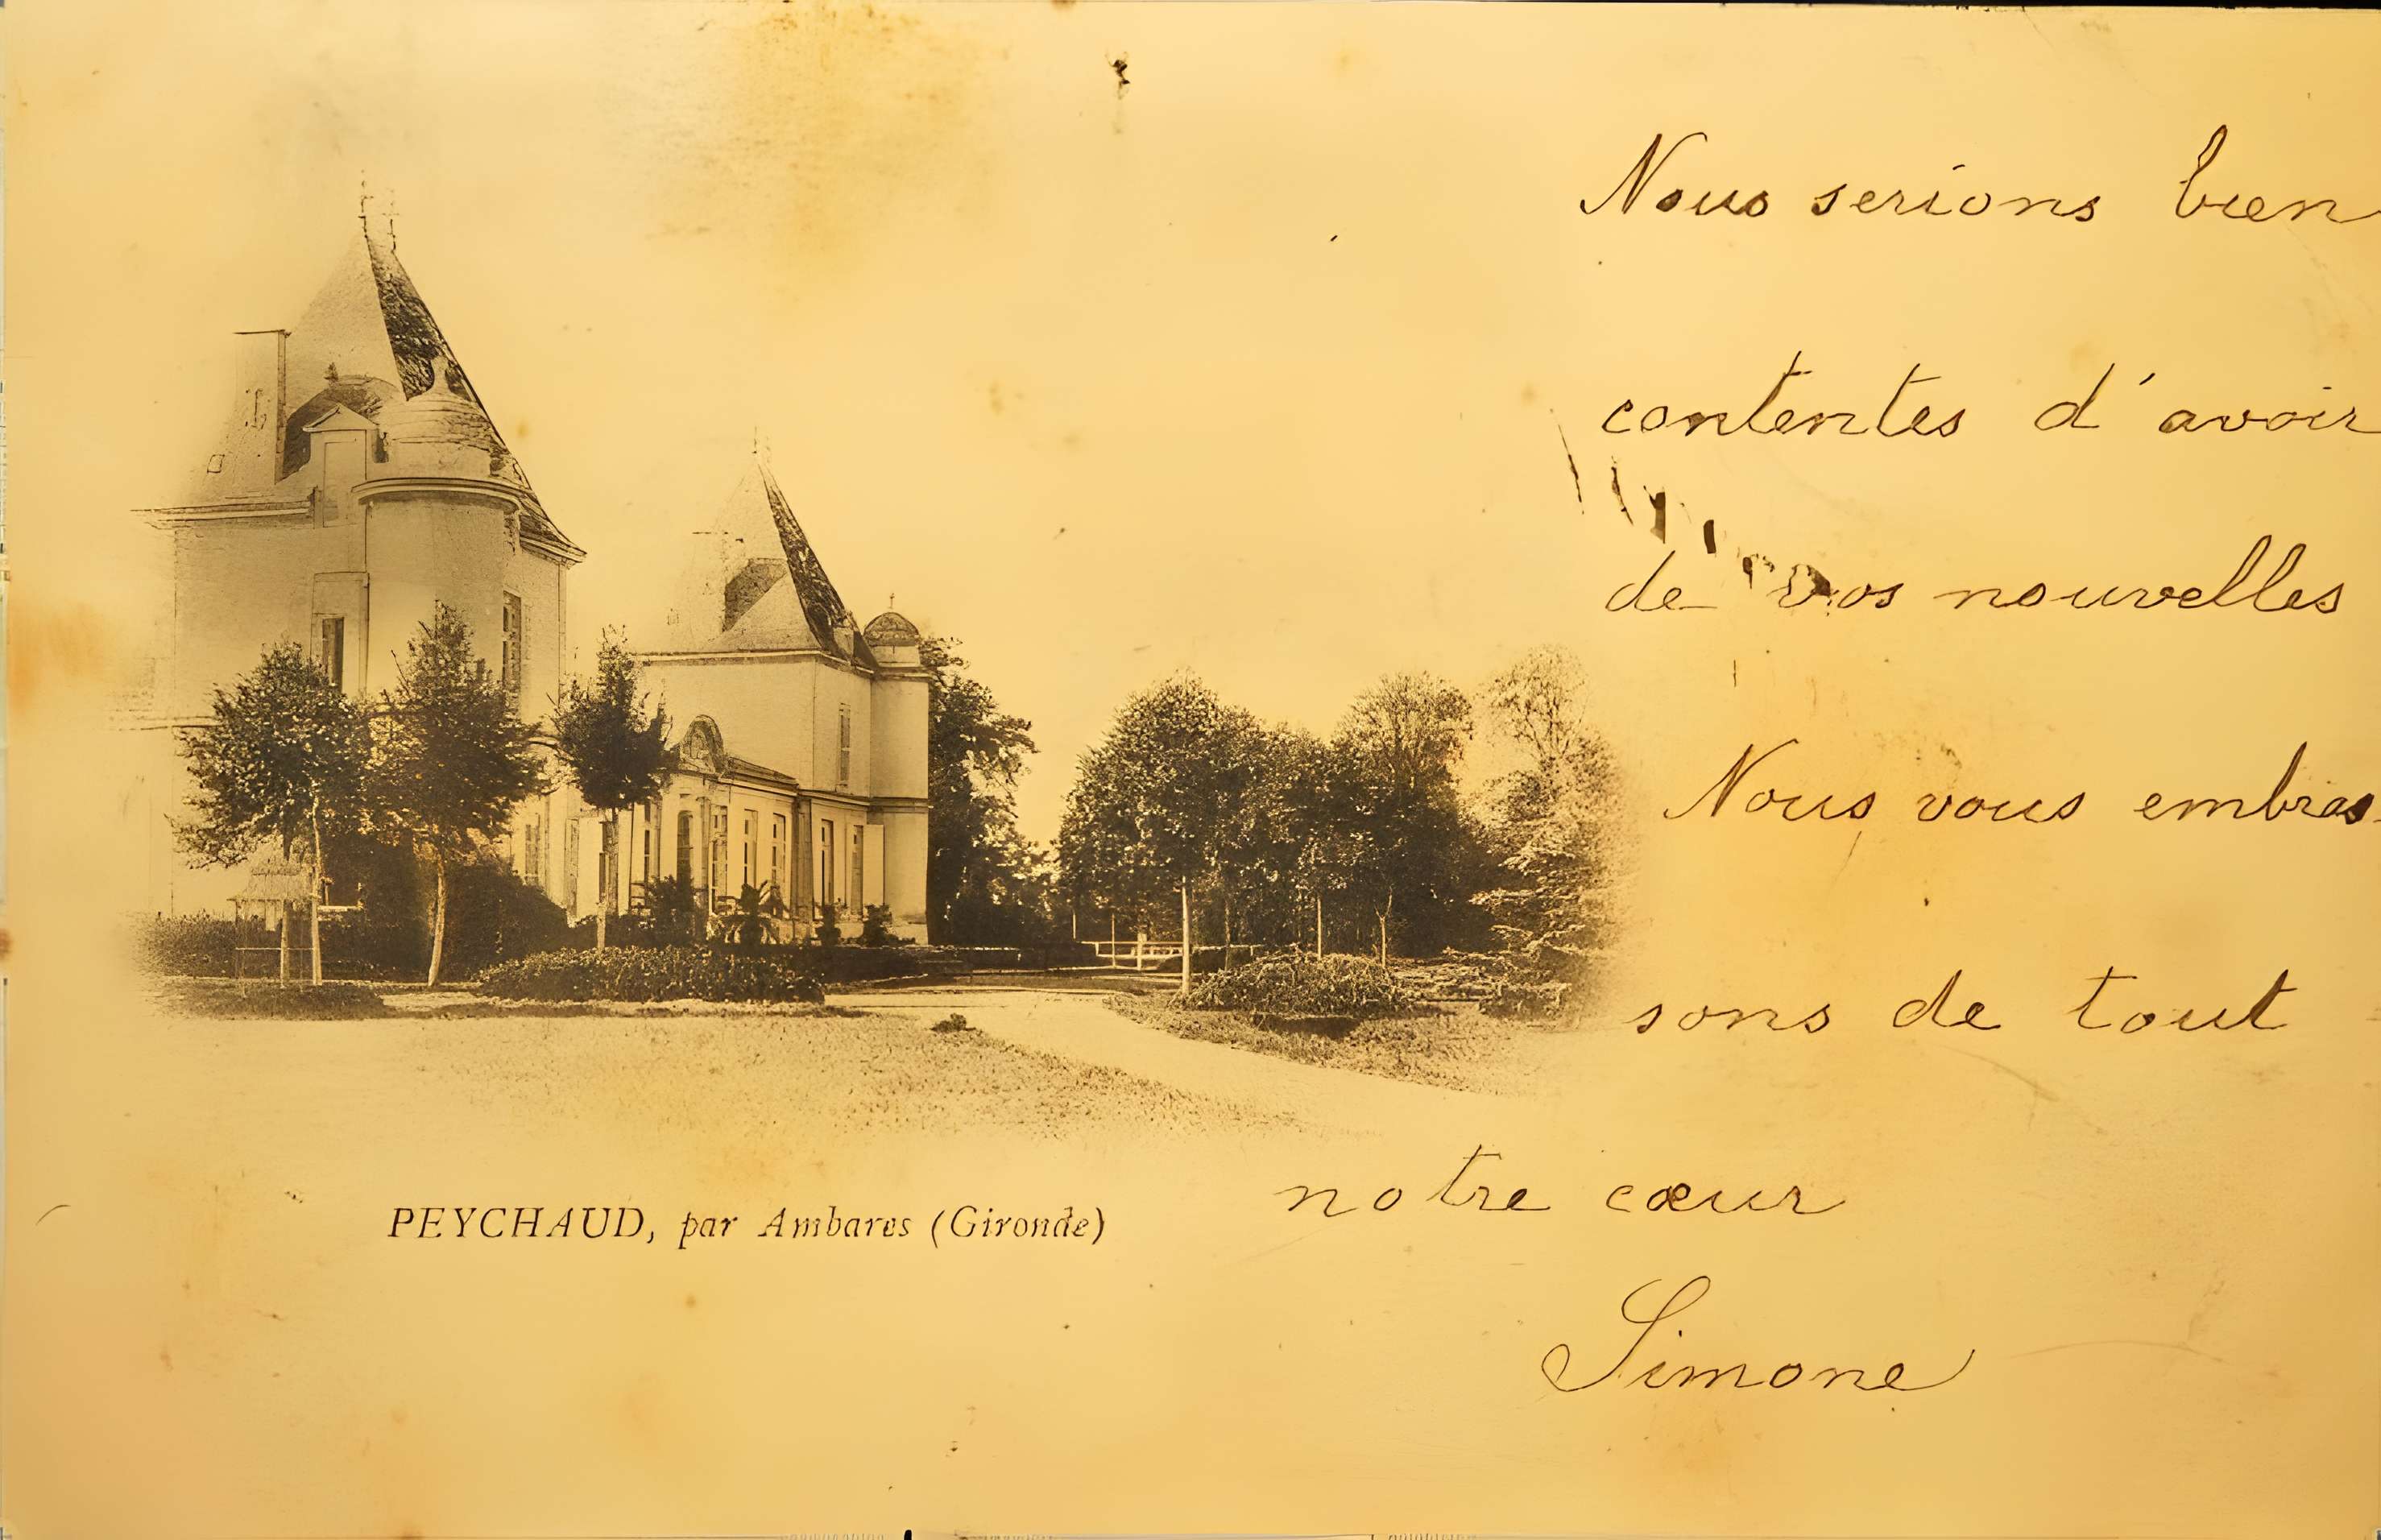 Nous serions bien
contentes d'avoir
de vos nouvelles
Nous vous embras-
sons de tout
notre cœur
Simone
PEYCHAUD, par Ambares (Gironde)